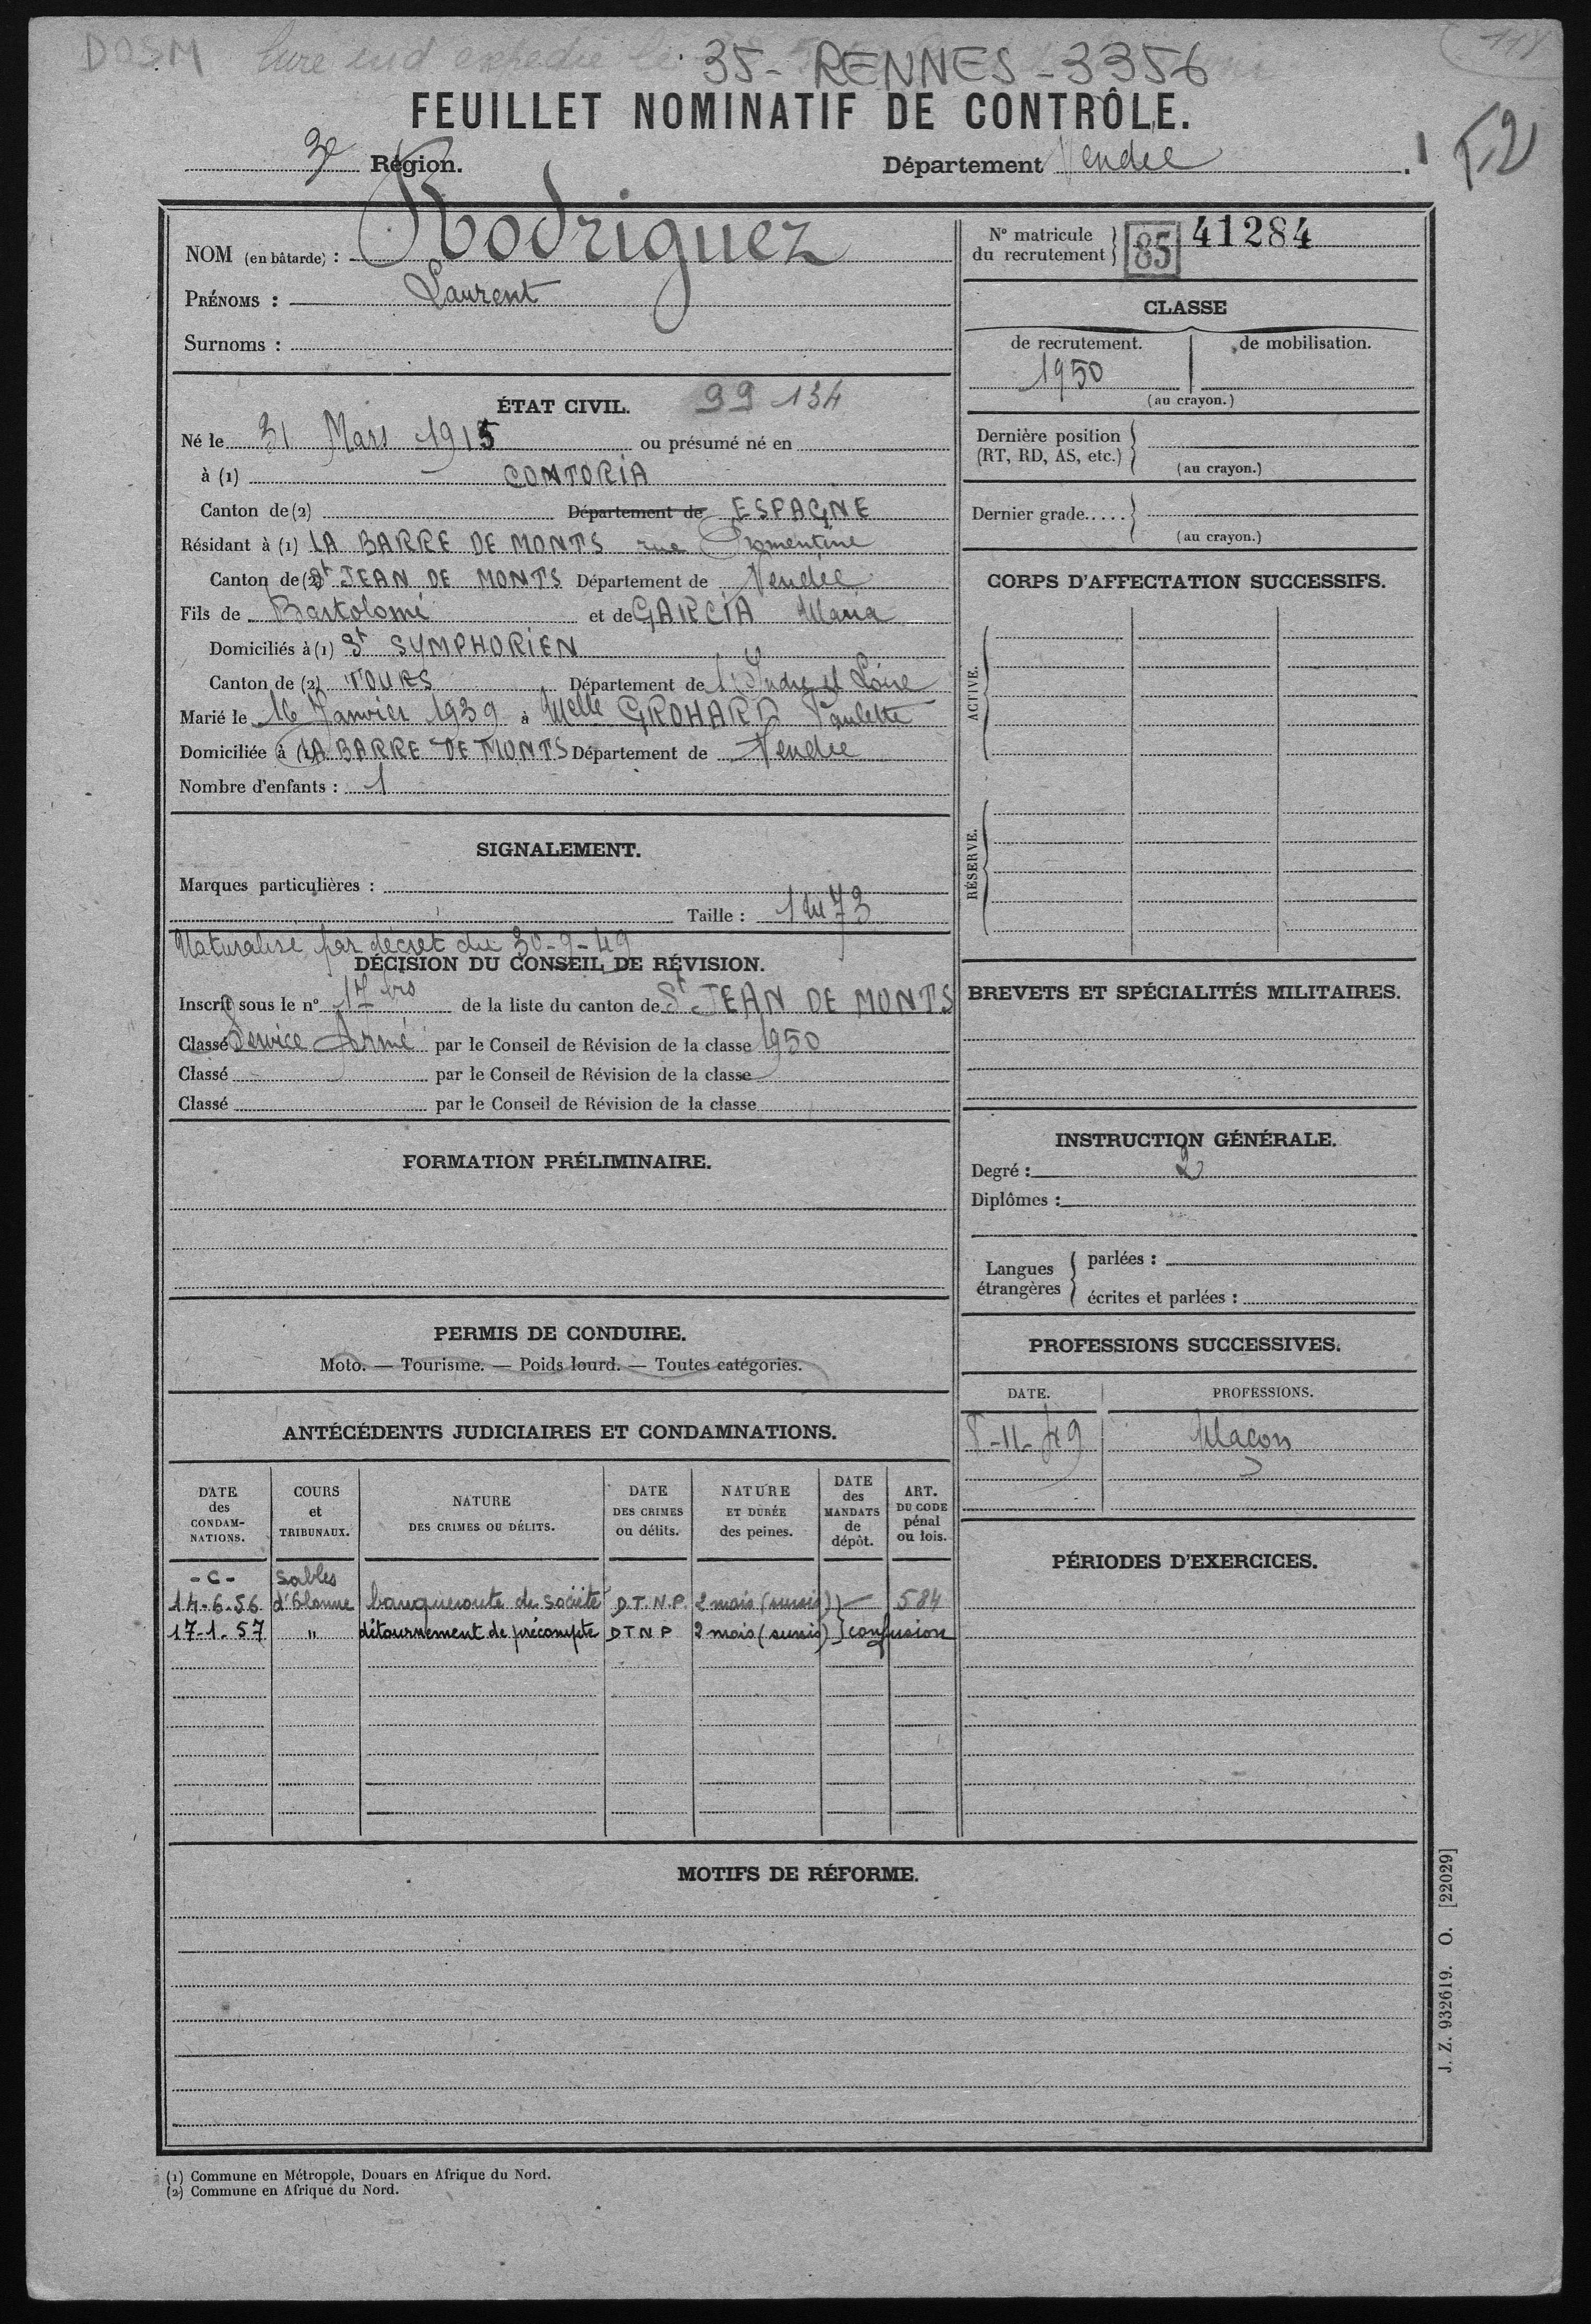 DOSM livre ind expédié le
35 - RENNES - 3356
118
FEUILLET NOMINATIF DE CONTRÔLE.
3e Région.
Département Vendée.
NOM (en bâtarde) : Rodriguez
PRÉNOMS : Laurent
Surnoms :
ÉTAT CIVIL. 99 134
Né le 31 Mars 1915 ou présumé né en
à (1) CONTORIA
Canton de (2) Département de ESPAGNE
Résidant à (1) LA BARRE DE MONTS rue Fromentine
Canton de (2) St JEAN DE MONTS Département de Vendée
Fils de Bartolomé et de GARCIA Maria
Domiciliés à (1) St SYMPHORIEN
Canton de (2) TOURS Département de l'Indre et Loire
Marié le 16 Janvier 1939 à Melle GROHARD Paulette
Domiciliée à (1) LA BARRE DE MONTS Département de Vendée
Nombre d'enfants : 1
SIGNALEMENT.
Marques particulières :
Taille : 1m73
Naturalisé par décret du 30-9-49
DÉCISION DU CONSEIL DE RÉVISION.
Inscrit sous le n° 17 bis de la liste du canton de St JEAN DE MONTS
Classé Service Armé par le Conseil de Révision de la classe 1950
Classé par le Conseil de Révision de la classe
Classé par le Conseil de Révision de la classe
FORMATION PRÉLIMINAIRE.
PERMIS DE CONDUIRE.
Moto. — Tourisme. — Poids lourd. — Toutes catégories.
ANTÉCÉDENTS JUDICIAIRES ET CONDAMNATIONS.
DATE des CONDAMNATIONS.
COURS et TRIBUNAUX.
NATURE DES CRIMES OU DÉLITS.
DATE DES CRIMES ou délits.
NATURE ET DURÉE des peines.
DATE des MANDATS de dépôt.
ART. DU CODE pénal ou lois.
- C - Sables
14-6-56 d'Olonne banqueroute de société D.T.N.P. 2 mois (sursis) } — 584
17-1-57 " détournement de précompte DTNP 2 mois (sursis) } confusion
N° matricule du recrutement } 85 41284
CLASSE
de recrutement. de mobilisation.
1950
(au crayon.)
Dernière position (RT, RD, AS, etc.)
(au crayon.)
Dernier grade.....
(au crayon.)
CORPS D'AFFECTATION SUCCESSIFS.
ACTIVE.
RÉSERVE.
BREVETS ET SPÉCIALITÉS MILITAIRES.
INSTRUCTION GÉNÉRALE.
Degré : 2
Diplômes :
Langues étrangères
parlées :
écrites et parlées :
PROFESSIONS SUCCESSIVES.
DATE. PROFESSIONS.
8-11-49 Maçon
PÉRIODES D'EXERCICES.
MOTIFS DE RÉFORME.
J. Z. 932619. O. [22029]
(1) Commune en Métropole, Douars en Afrique du Nord.
(2) Commune en Afrique du Nord.